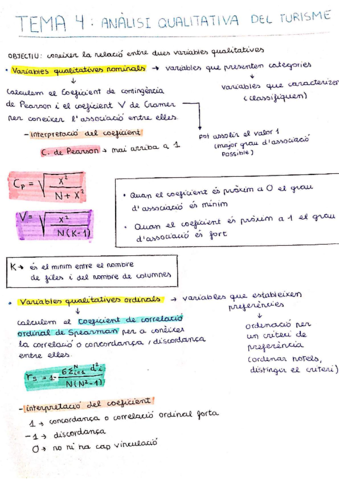 TEMA 4: ANÀLISI QUALITATIVA DEL TURISME
OBJECTIU: coneixer la relació entre dues variables qualitatives
• Variables qualitatives nominals → variables que presenten categories
variables que caracteritzen
(classifiquen)
Calculem el Coeficient de contingència
de Pearson i el coeficient V de Cramer
per coneixer l'associació entre elles.
pot assolir el valor 1
(major grau d'associació
possible)
- Interpretació del coeficient
C. de Pearson → mai arriba a 1
Cp = √ X² / N + X²
V = √ X² / N(K-1)
• Quan el coeficient és pròxim a 0 el grau
d'associació és mínim
• Quan el coeficient és pròxim a 1 el grau
d'associació és fort
K → és el mínim entre el nombre
de files i del nombre de columnes
• Variables qualitatives ordinals → variables que estableixen
preferències
calculem el Coeficient de correlació
ordinal de Spearman per a conèixer
la correlació o concordança / discordança
entre elles.
ordenació per
un criteri de
preferència
(ordenar hotels,
distingir el criteri)
rs = 1 - 6Σ d²i / N(N²-1)
- interpretació del coeficient
1 → concordança o correlació ordinal forta
-1 → discordança
0 → no hi ha cap vinculació